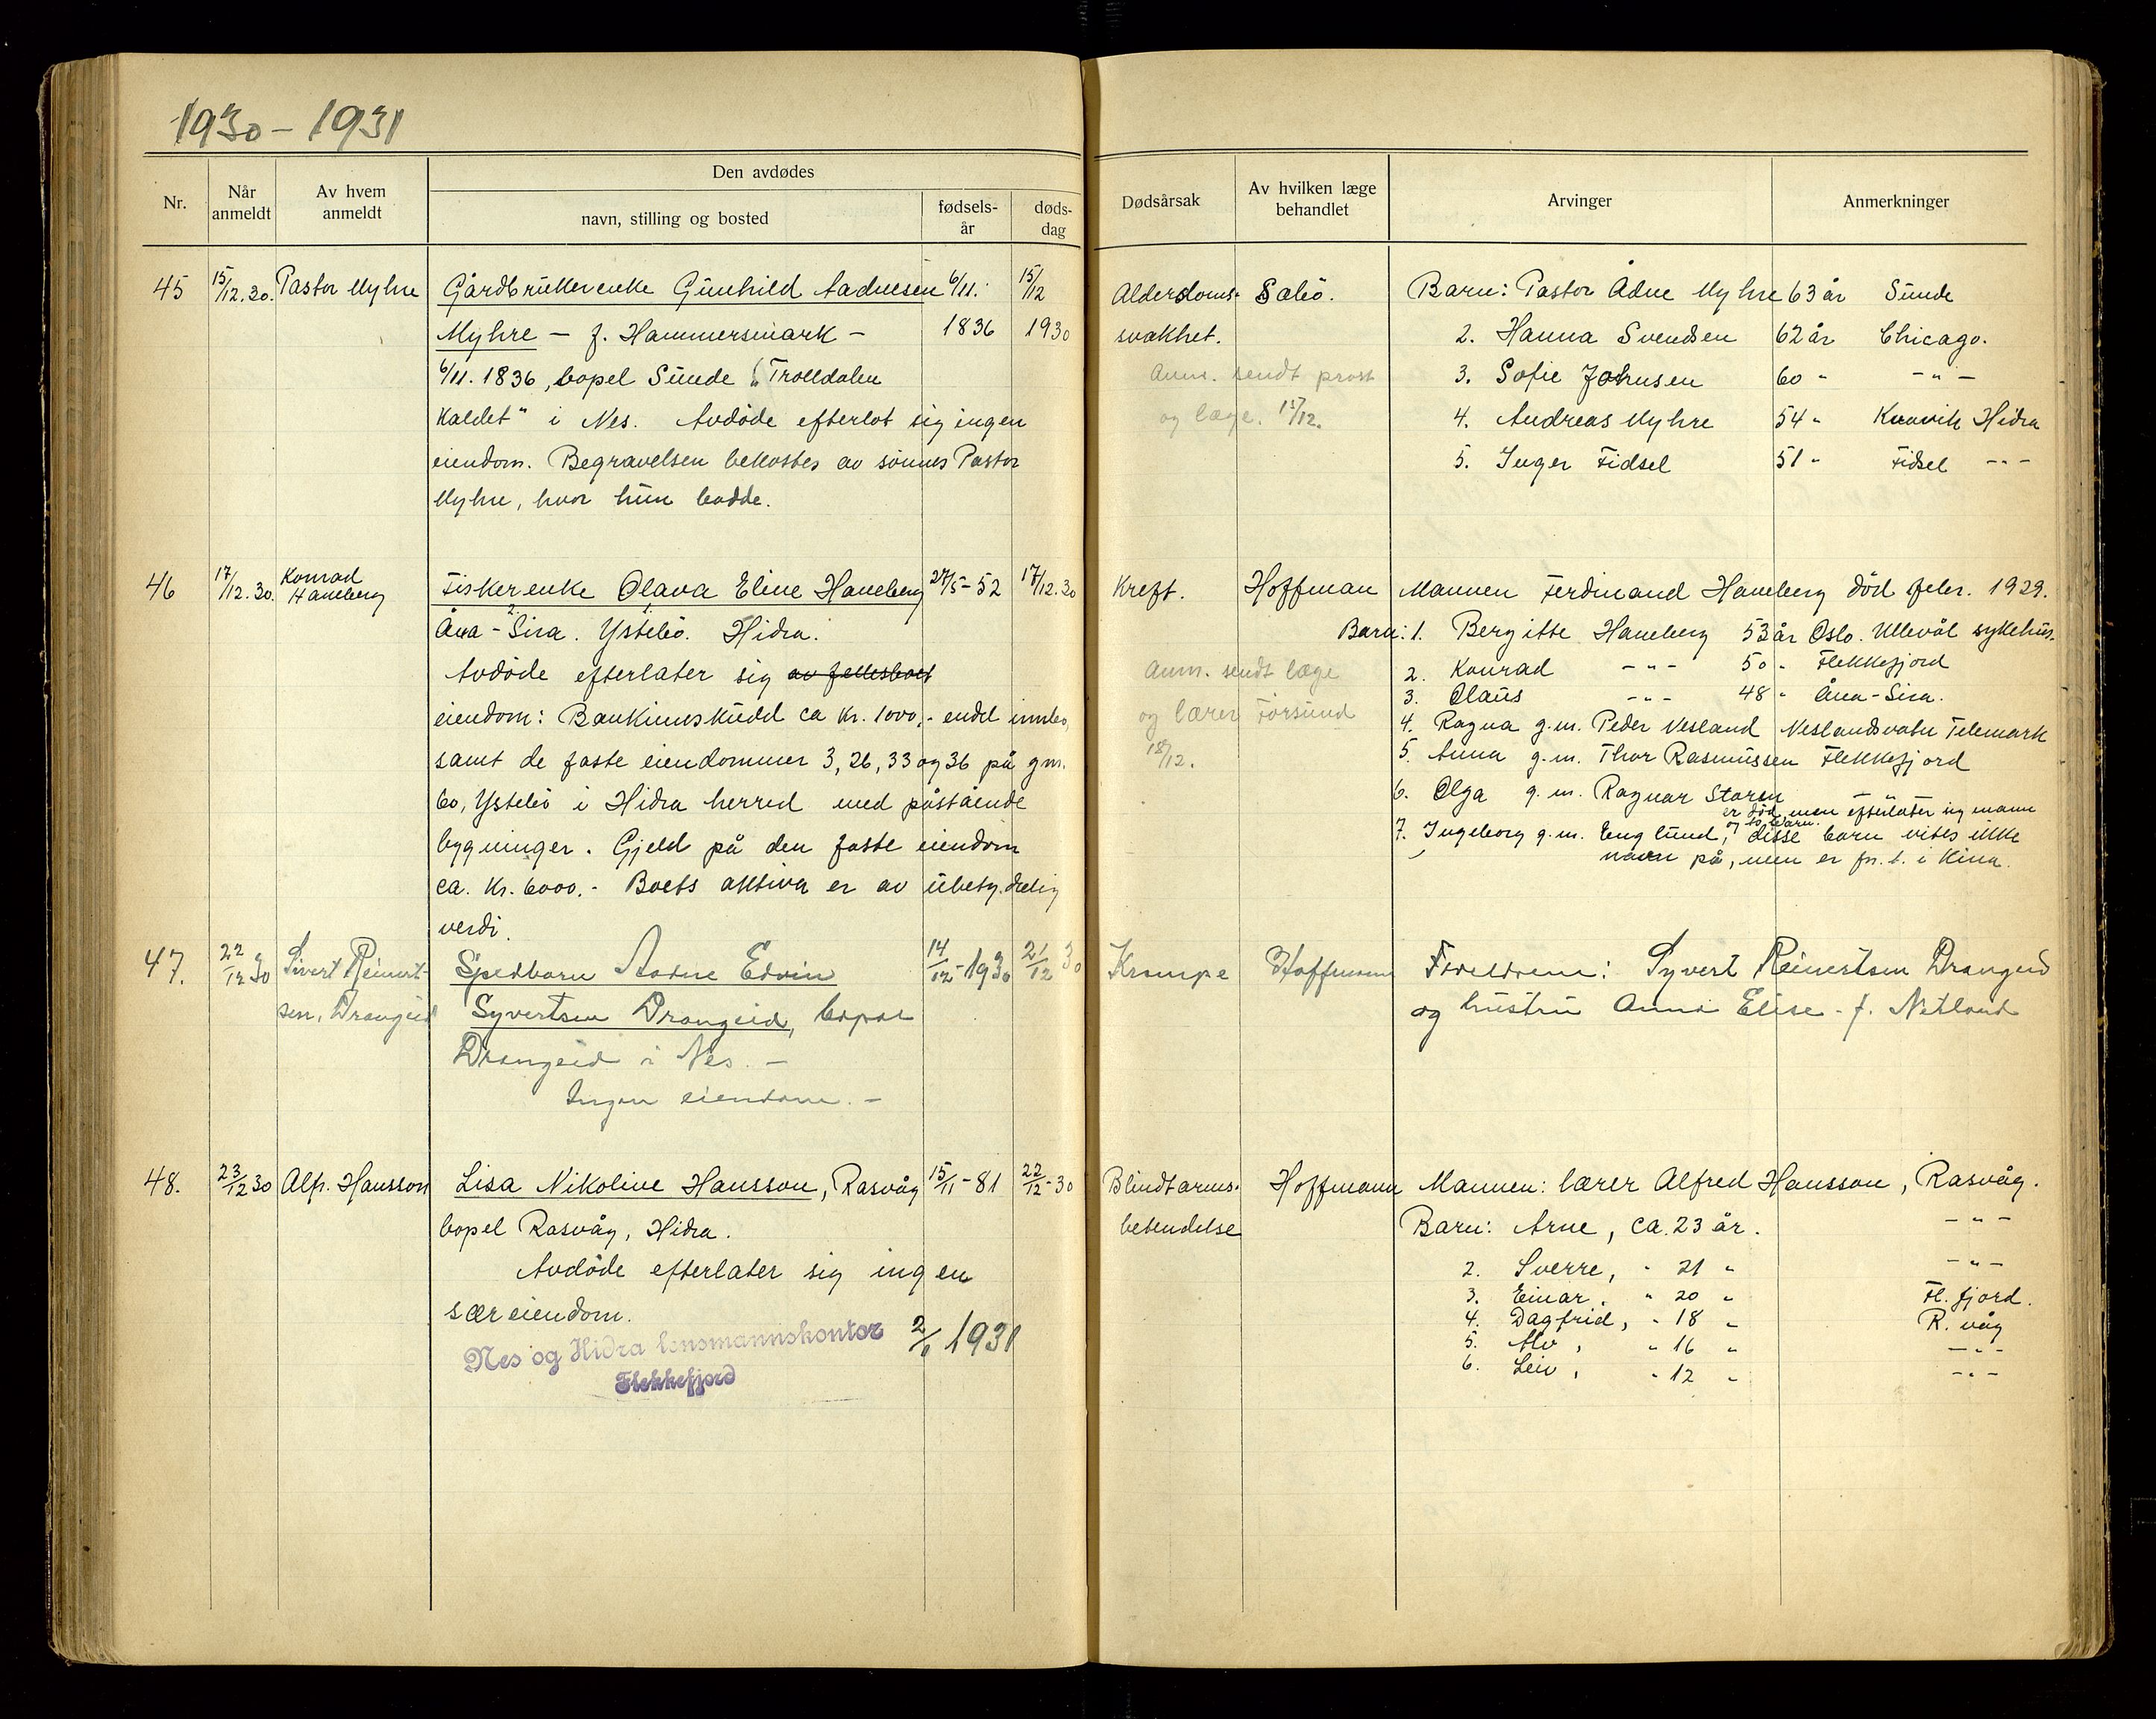 1930 - 1931
Nr.
Når anmeldt
Av hvem anmeldt
Den avdødes
navn, stilling og bosted
fødselsår
dødsdag
Dødsårsak
Av hvilken læge behandlet
Arvinger
Anmerkninger
45 15/12.30. Pastor Myhre Gårdbrukerenke Gunhild Aadnesen 6/11. 15/12
Myhre — f. Hammersmark — 1836 1930
6/11. 1836, bopel Sunde „Trolldalen
kaldet" i Nes. Avdöde efterlot sig ingen
eiendom. Begravelsen bekostes av sönnes Pastor
Myhre, hvor hun bodde.
Alderdoms- Salió.
svakhet.
Anm. sendt prost
og læge. 15/12.
Barn: Pastor Ådne Myhre 63 år Sunde
2. Hanna Svendsen 62 år Chicago.
3. Sofie Johnsen 60 " — " —
4. Andreas Myhre 54 " Kvavik Hidra
5. Inger Fidsel 51 " Fidsel - " -
46 17/12.30. Konrad Haneberg Fiskerenke Olava Eline Haneberg 27/5-52 17/12.30
2. 1.
Åna-Sira. Ystebö. Hidra.
Avdöde efterlater sig av fellesboet
eiendom: Bankinnskudd ca kr. 1000,- endel innbo,
samt de faste eiendommer 3, 26, 33 og 36 på gm.
60, Ystebö i Hidra herred med påstående
bygninger. Gjeld på den faste eiendom
ca. kr. 6000.- Boets aktiva er av ubetydelig
verdi.
Kreft. Hoffman
Anm. sendt læge
og lærer Forsund
18/12.
Mannen Ferdinand Haneberg död febr. 1929.
Barn: 1. Bergitte Haneberg 53 år Oslo. Ullevål sykehus.
2. Konrad - " - 50 " Flekkefjord
3. Olaus - " - 48 " Åna-Sira.
4. Ragna g.m. Peder Vesland Neslandsvatn Telemark
5. Anna g.m. Thor Rasmussen Flekkefjord
6. Olga g.m. Ragnar Staren
er död, men efterlater sig mann
og to barn.
7. Ingeborg g.m. Englund, disse barn vites ikke
navn på, men er fn. t. i Kina.
47. 22/12 30 Sivert Reinert- Spedbarn Aadne Edvin 14/12-1930 21/12 30
sen, Drangeid Syvertsen Drangeid, bopæl
Drangeid i Nes. —
Ingen eiendom. —
Krampe Hoffmann
Foreldrene: Syvert Reinertsen Drangeid
og hustru Anna Elise - f. Netland
48. 23/12 30 Alfr. Hansson Lisa Nikoline Hansson, Rasvåg 15/11-81 22/12-30
bopel Rasvåg, Hidra.
Avdöde efterlater sig ingen
særeiendom.
Nes og Hidra lensmannskontor 2/1 1931
Flekkefjord
Blindtarms- Hoffmann
betendelse
Mannen: lærer Alfred Hansson, Rasvåg.
Barn: Arne, ca. 23 år. - " -
2. Sverre, " 21 " - " -
3. Einar, " 20 " Fl. fjord.
4. Dagfrid, " 18 " R. våg
5. Alv, " 16 " - " -
6. Leiv, " 12 " - " -